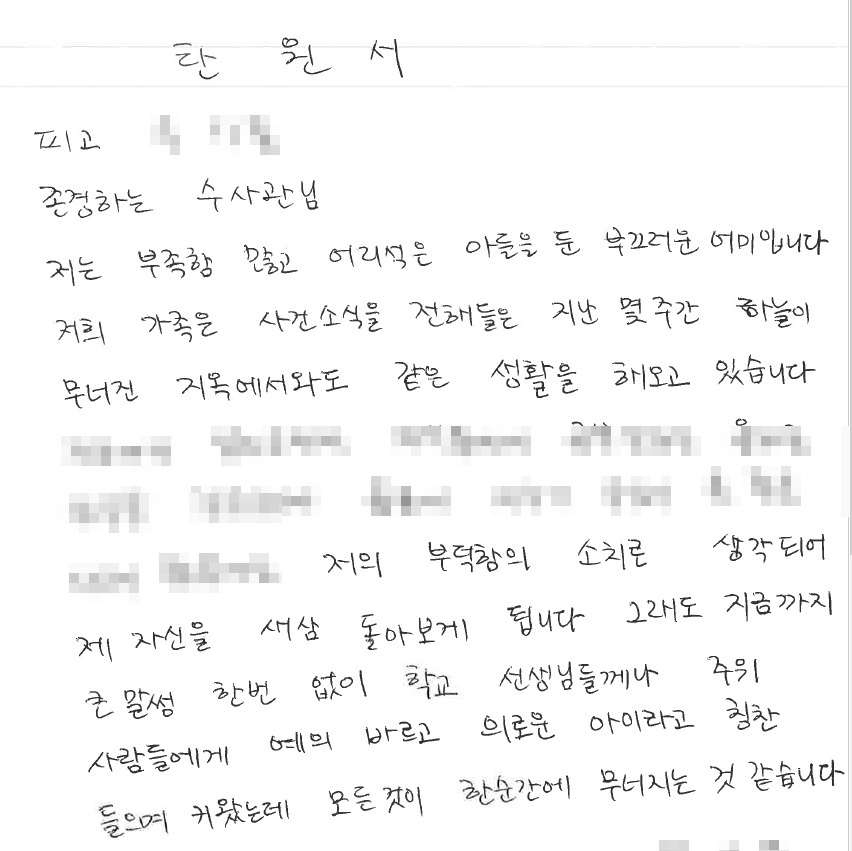 탄 원 서
피고
존경하는 수사관님
저는 부족함 많고 어리석은 아들을 둔 부끄러운 어미입니다
저희 가족은 사건소식을 전해들은 지난 몇주간 하늘이
무너진 지옥에서와도 같은 생활을 해오고 있습니다
저의 부덕함의 소치로 생각되어
제 자신을 새삼 돌아보게 됩니다 그래도 지금까지
큰 말썽 한번 없이 학교 선생님들께나 주위
사람들에게 예의 바르고 의로운 아이라고 칭찬
들으며 커왔는데 모든것이 한순간에 무너지는 것 같습니다